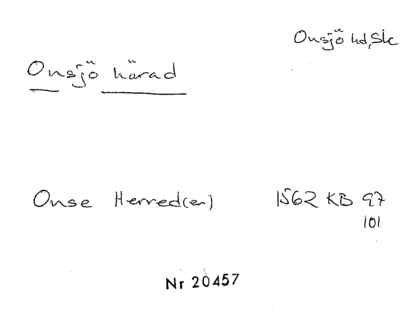 Onsjö hd, Sk
Onsjö härad
Onse Herred(er) 1562 KB 97
101
Nr 20457